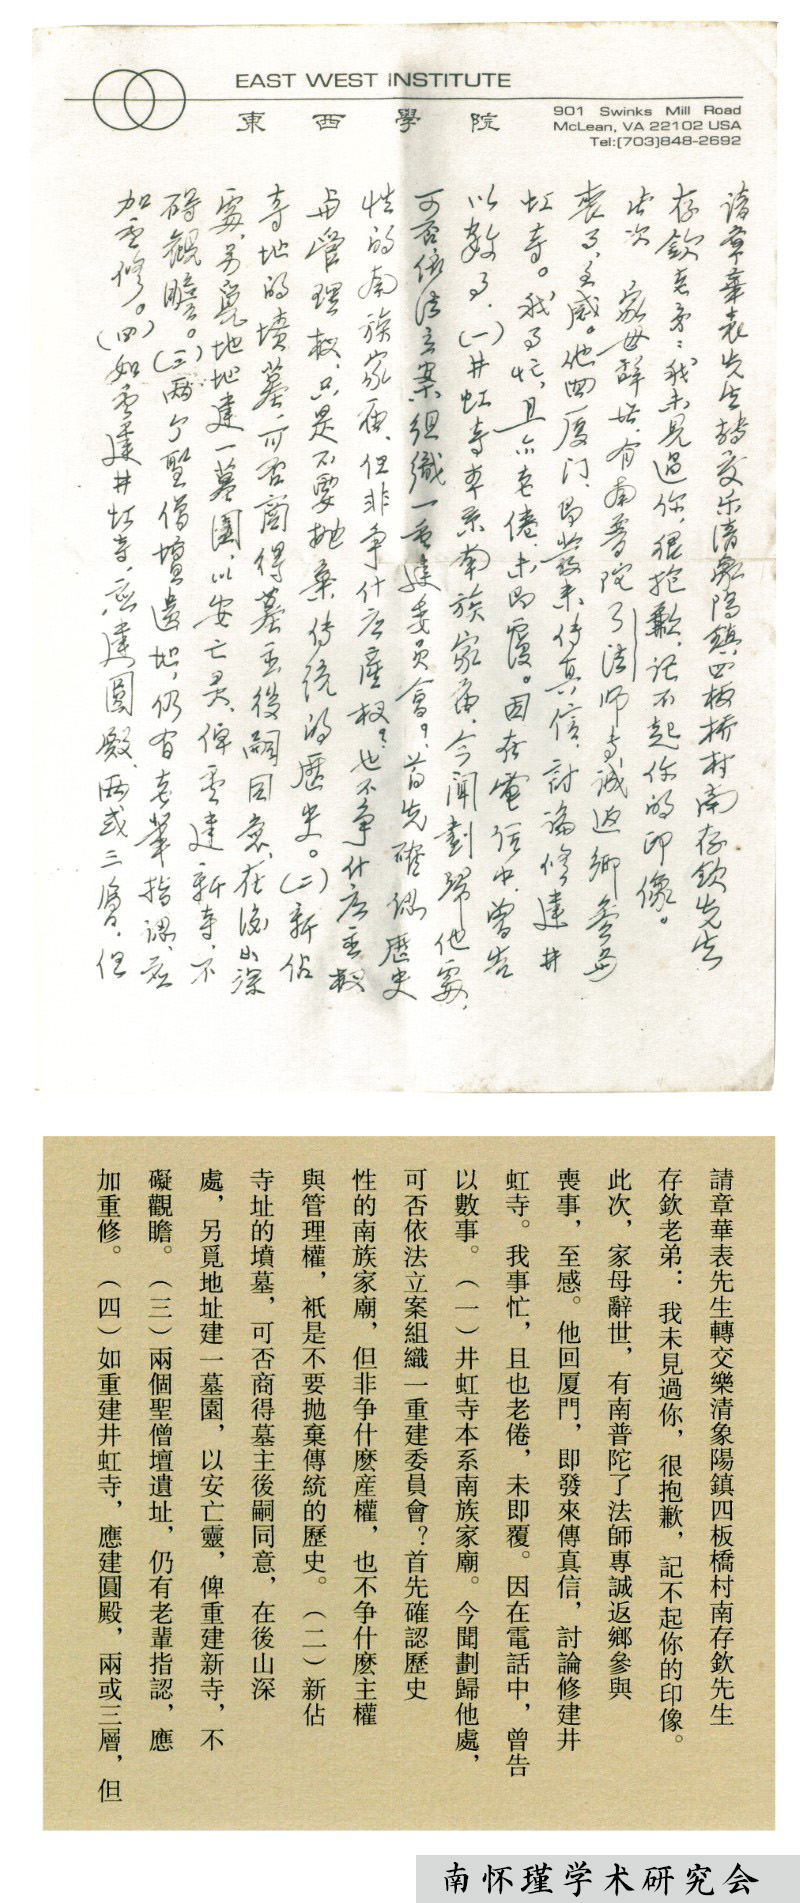 EAST WEST INSTITUTE
東西學院
901 Swinks Mill Road
McLean, VA 22102 USA
Tel:(703)848-2692
请章華表先生轉交乐清象陽鎮四板桥村南存欽先生
存欽老弟：我未見過你，很抱歉，记不起你的印像。
此次，家母辞世，有南普陀了法师专诚返鄉參与
丧事，至感。他回厦门，即发来传真信，討論修建井
虹寺。我事忙，且亦老倦，未即覆。因在電话中，曾告
以数事。（一）井虹寺本系南族家庙。今聞劃歸他處，
可否依法立案组織一重建委员會？首先確認歷史
性的南族家庙，但非争什么產权，也不争什么主权
与管理权，只是不要抛棄传统的歷史。（二）新佔
寺地的墳墓，可否商得墓主後嗣同意，在後山深
處，另覓地址建一墓園，以安亡灵，俾重建新寺，不
碍觀瞻。（三）两个聖僧壇遗址，仍有老輩指認，应
加重修。（四）如重建井虹寺，应建圓殿，两或三層，但
請章華表先生轉交樂清象陽鎮四板橋村南存欽先生
存欽老弟：我未見過你，很抱歉，記不起你的印像。
此次，家母辭世，有南普陀了法師專誠返鄉參與
喪事，至感。他回厦門，即發來傳真信，討論修建井
虹寺。我事忙，且也老倦，未即覆。因在電話中，曾告
以數事。（一）井虹寺本系南族家廟。今聞劃歸他處，
可否依法立案組織一重建委員會？首先確認歷史
性的南族家廟，但非争什麽産權，也不争什麽主權
與管理權，衹是不要抛棄傳統的歷史。（二）新佔
寺址的墳墓，可否商得墓主後嗣同意，在後山深
處，另覓地址建一墓園，以安亡靈，俾重建新寺，不
礙觀瞻。（三）兩個聖僧壇遺址，仍有老輩指認，應
加重修。（四）如重建井虹寺，應建圓殿，兩或三層，但
南怀瑾学术研究会